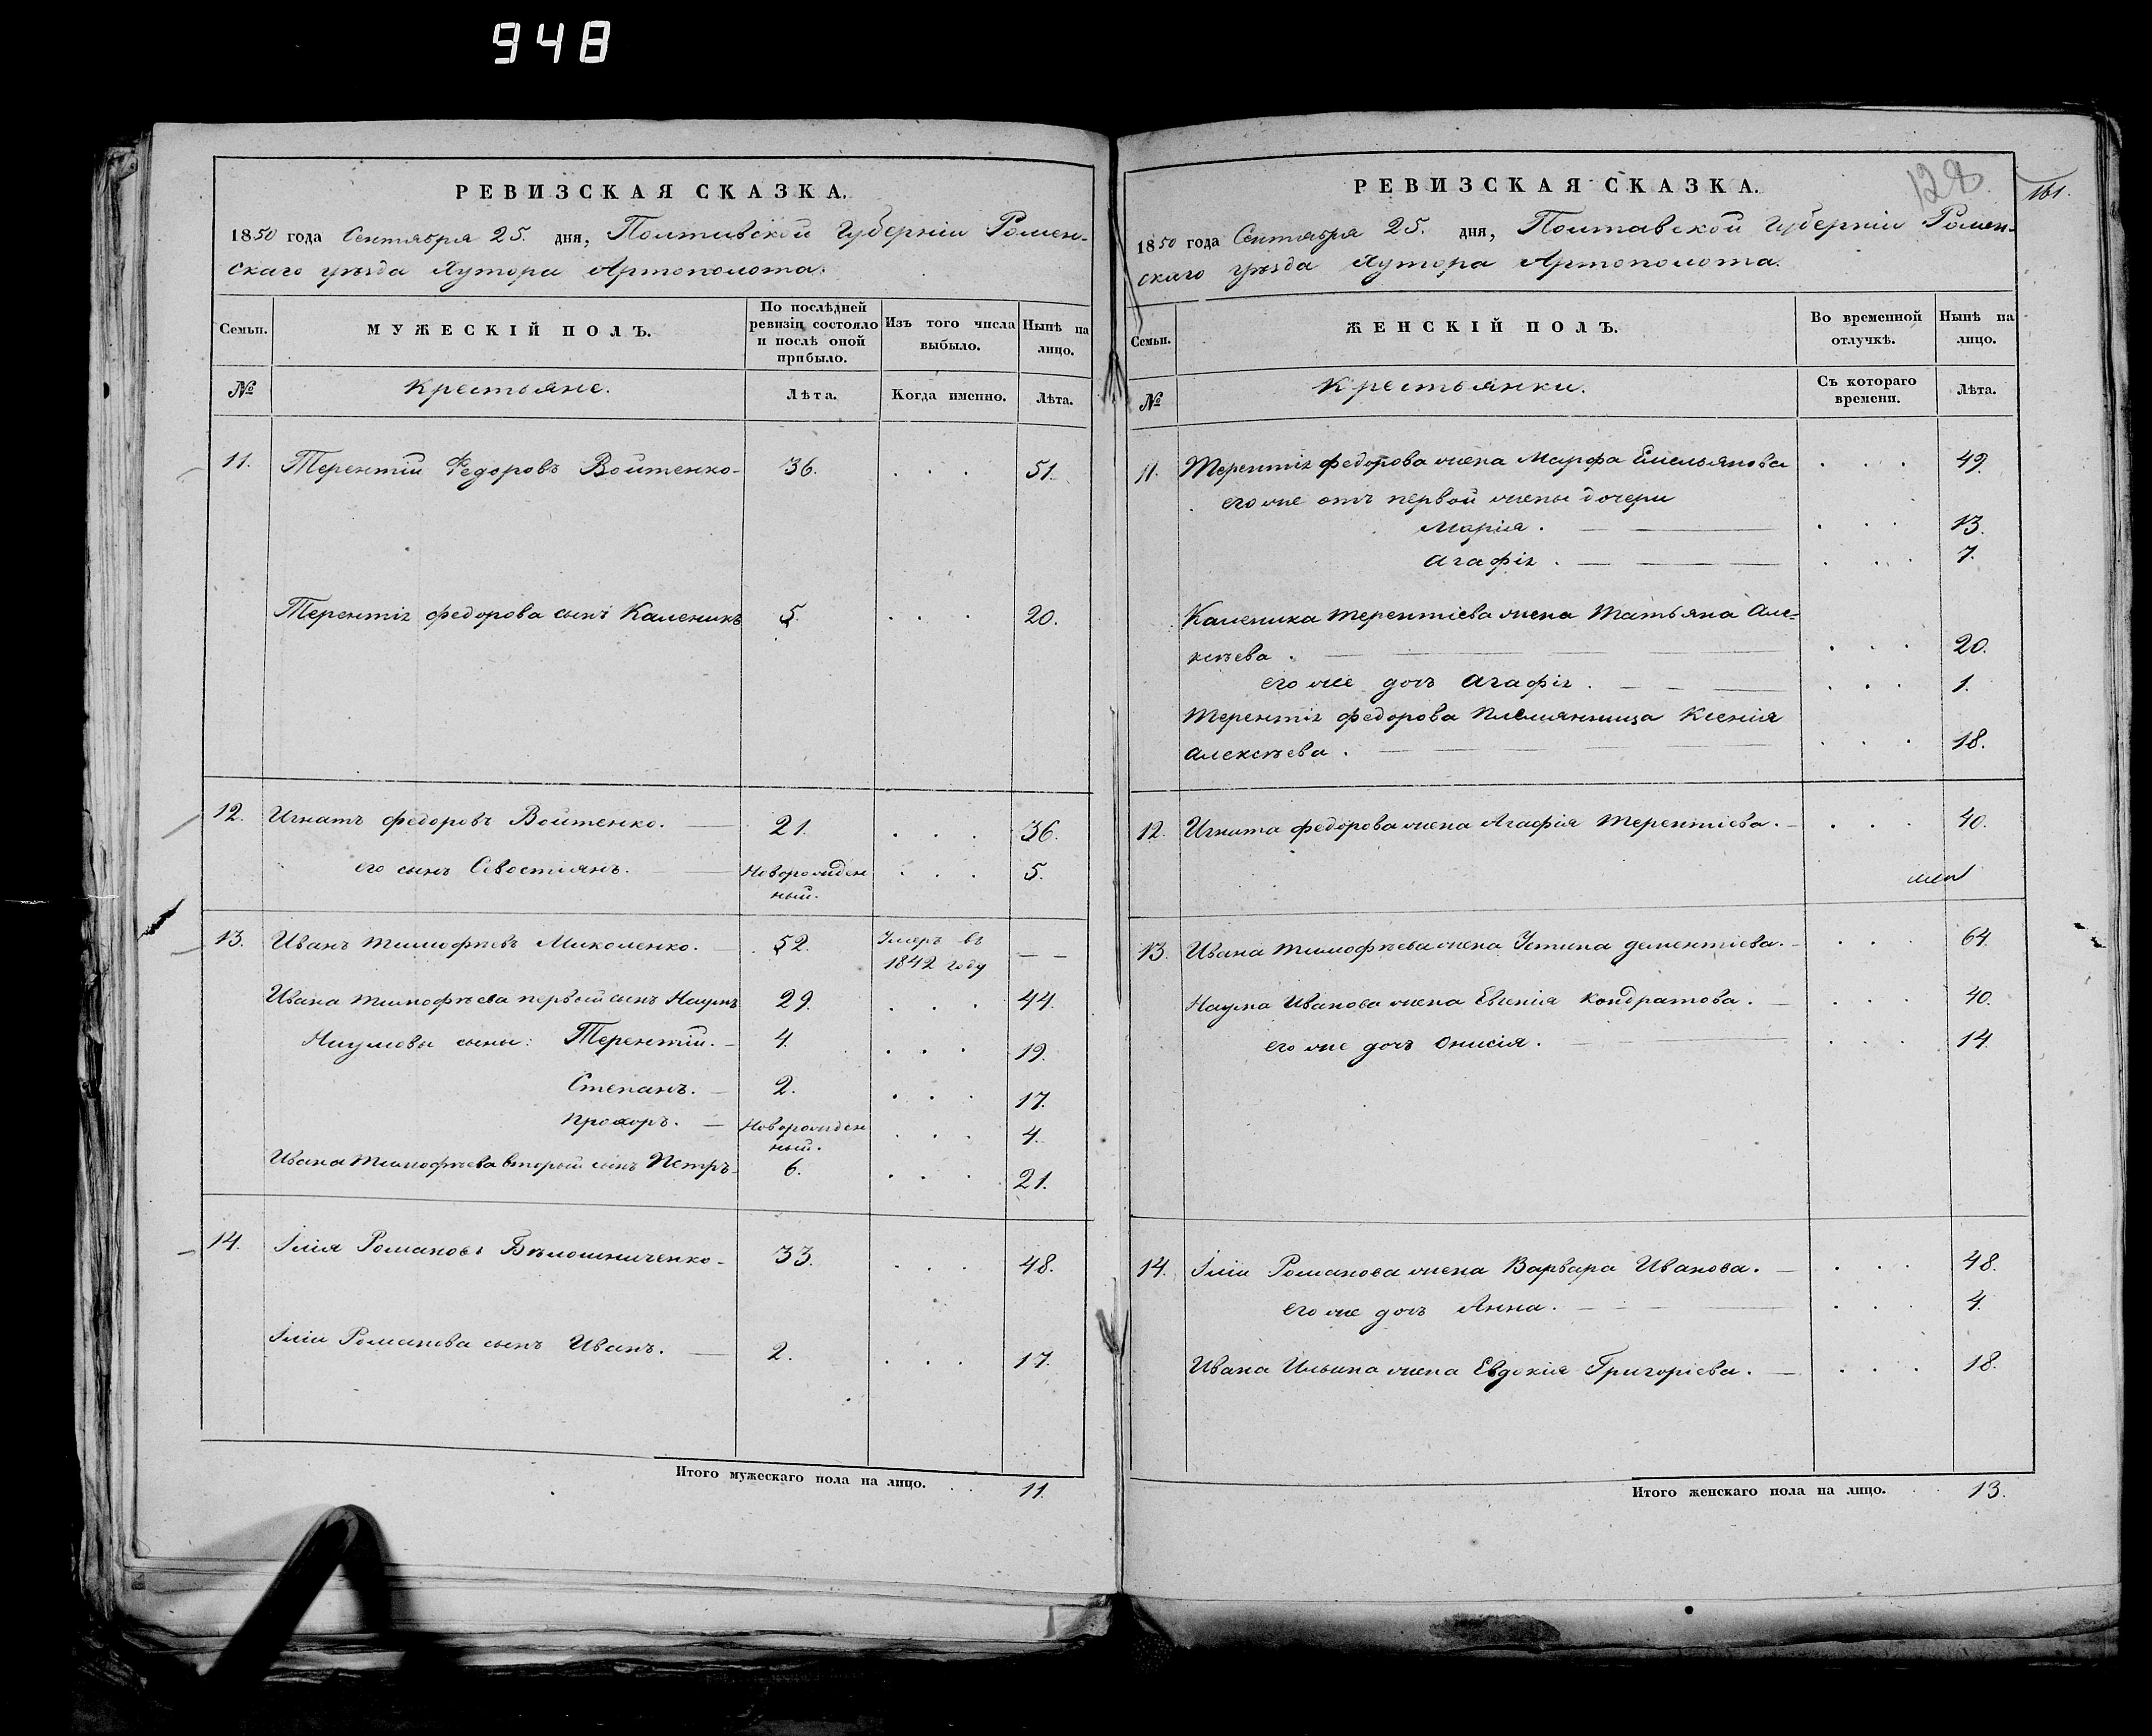 948
РЕВИЗСКАЯ СКАЗКА.
1850 года Сентября 25. дня, Полтавской Губерніи Ромен-
скаго уѣзда Хутора Артополота.
Семьи.
МУЖЕСКІЙ ПОЛЪ.
По послѣдней ревизіи состояло и послѣ оной прибыло.
Изъ того числа выбыло.
Нынѣ на лицо.
№
Крестьяне.
Лѣта.
Когда именно.
Лѣта.
11. Терентій Федоровъ Войтенко- 36. . . . 51.
Терентія федорова сынъ Каленикъ 5. . . . 20.
12. Игнатъ федоровъ Войтенко. — 21. . . . 36.
его сынъ Севостіянъ. — Новорожден . . . 5.
ный.
13. Иванъ тимофѣевъ Миколенко. — 52. Умеръ въ — —
1842 году
Ивана тимофѣева первый сынъ Наумъ 29. . . . 44.
Наумовы сыны: Терентій. — 4. . . . 19.
Степанъ. — 2. . . . 17.
Прохоръ. — Новорожден . . . 4.
ный.
Ивана тимофѣева вторый сынъ Петръ- 6. . . . 21.
14. Ілія Романовъ Бѣлошниченко- 33. . . . 48.
Іліи Романова сынъ Иванъ. — 2. . . . 17.
Итого мужескаго пола на лицо. . . 11.
128.
161.
РЕВИЗСКАЯ СКАЗКА.
1850 года Сентября 25. дня, Полтавской Губерніи Ромен-
скаго уѣзда Хутора Артополота.
Семьи.
ЖЕНСКІЙ ПОЛЪ.
Во временной отлучкѣ.
Нынѣ на лицо.
№
Крестьянки.
Съ котораго времени.
Лѣта.
11. Терентія федорова жена Марфа Емельянова . . . 49.
его же отъ первой жены дочери
Марія. — — . . . 13.
Агафія. — — — . . . 7.
Каленика терентіева жена Татьяна Але-
ксѣева. — — — . . . 20.
его же дочь Агафія. — — — . . . 1.
Терентія федорова племянница Ксенія
Алексѣева. — — — . . . 18.
12. Игната федорова жена Агафія терентіева. — . . . 40.
13. Ивана тимофѣева жена Устина дементіева. — . . . 64.
Наума Иванова жена Евгенія Кондратова. — . . . 40.
его же дочь Онисія. — — . . . 14.
14. Іліи Романова жена Варвара Иванова. — . . . 48.
его же дочь Анна. — — — . . . 4.
Ивана Ильина жена Евдокія Григоріева. — . . . 18.
Итого женскаго пола на лицо. . . 13.